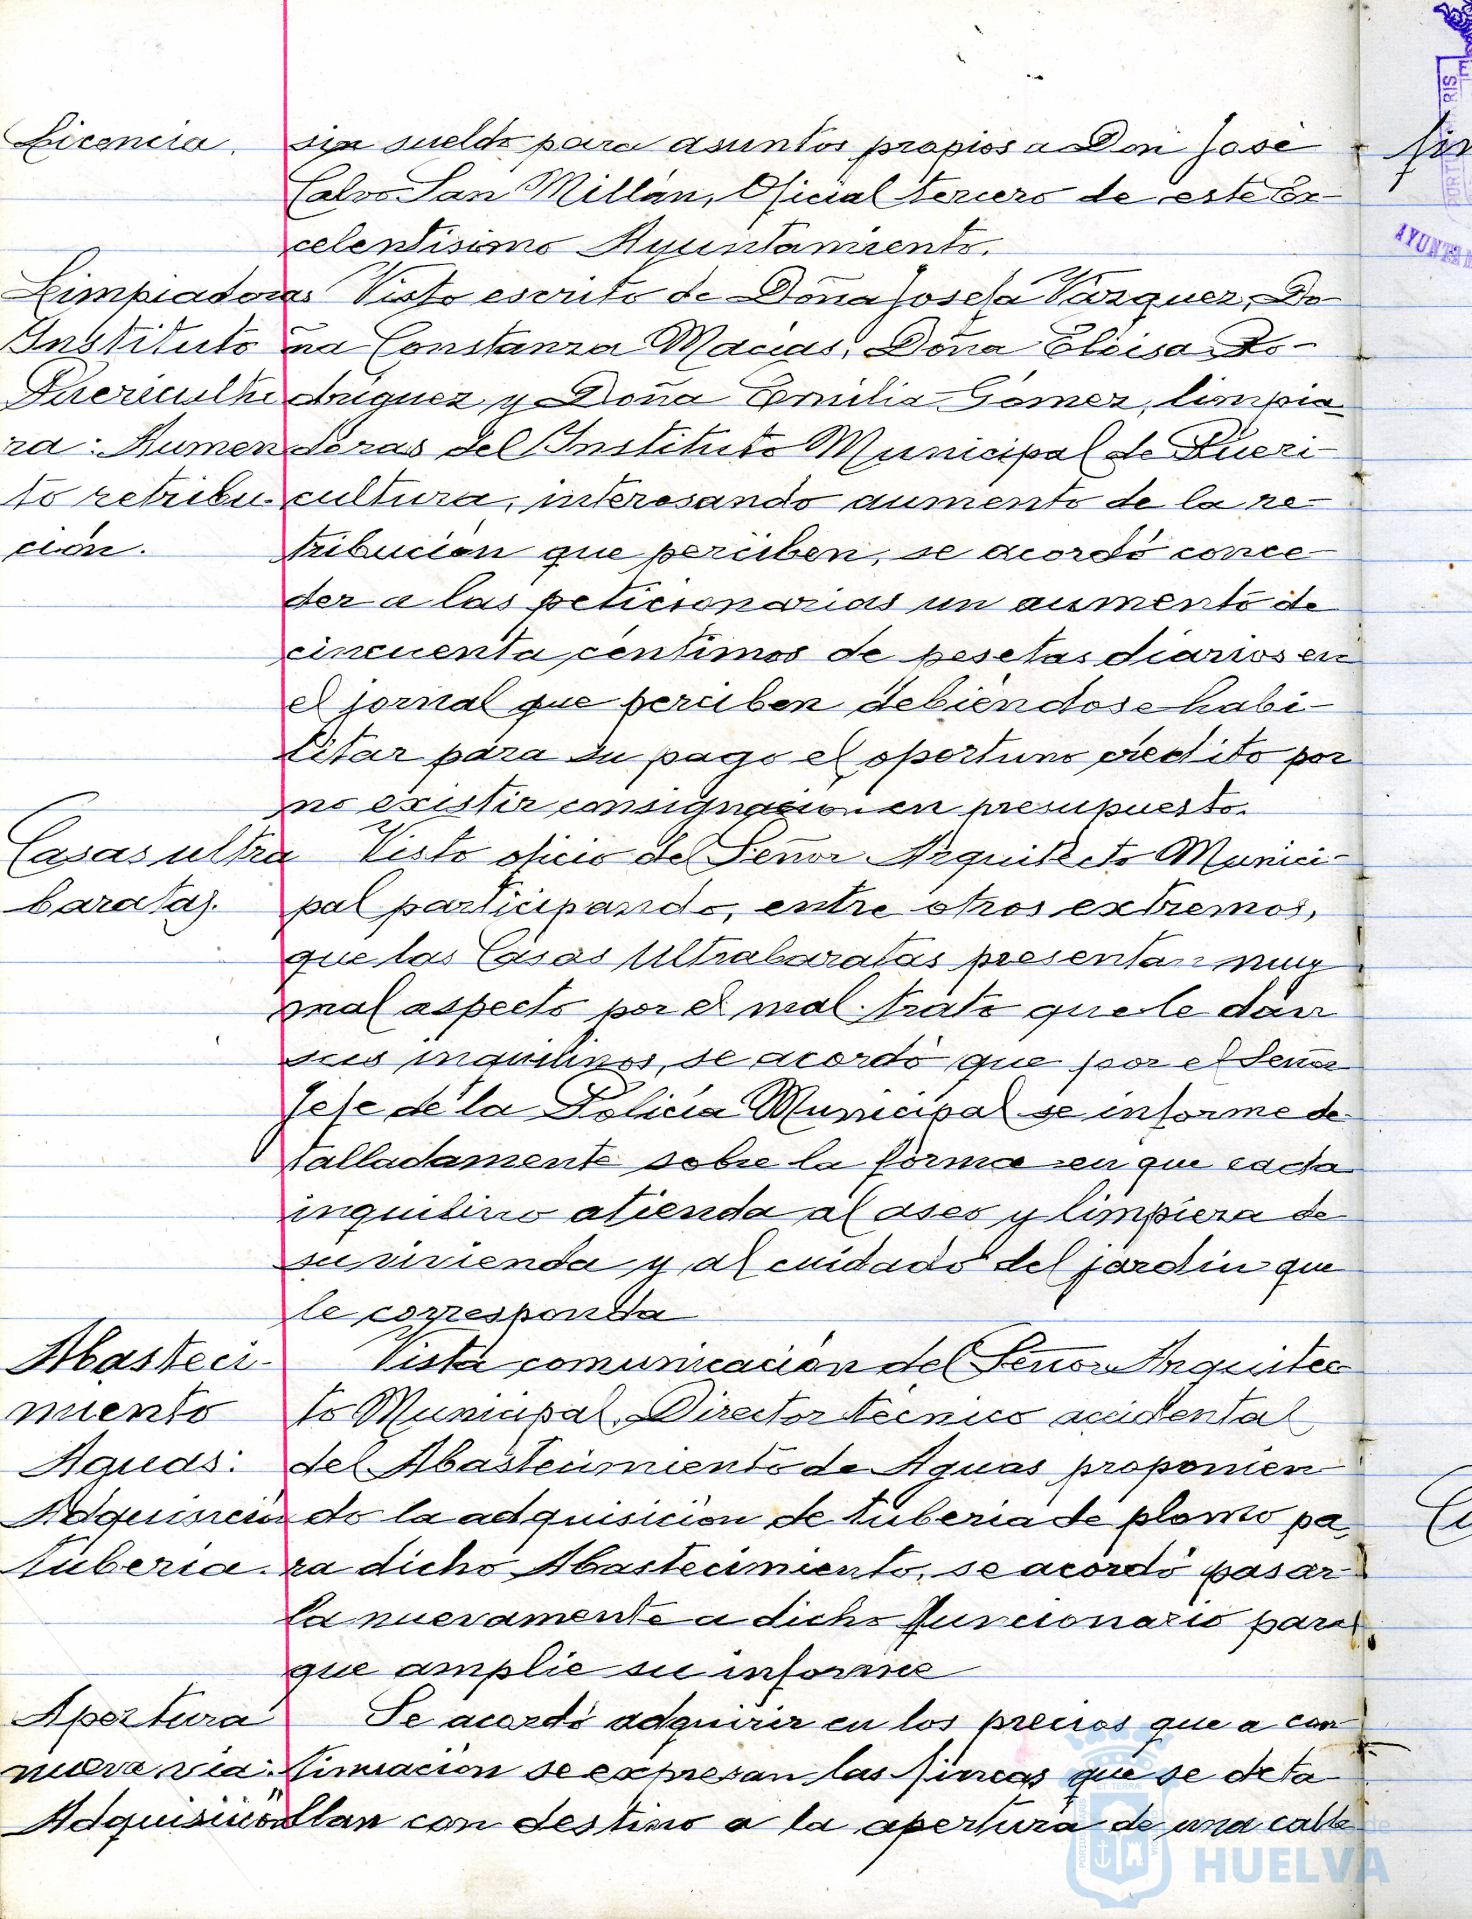 Licencia. sin sueldo para asuntos propios a Don José
Calvo San Millán, Oficial tercero de este Ex-
celentisimo Ayuntamiento.
Limpiadoras Visto escrito de Doña Josefa Vázquez, Do-
Instituto ña Constanza Macias, Doña Eloisa Ro-
Puericultu driguez y Doña Emilia Gómez, limpia-
ra: Aumen doras del Instituto Municipal de Pueri-
to retribu- cultura, interesando aumento de la re-
ción. tribución que perciben, se acordó conce-
der a las peticionarias un aumento de
cincuenta céntimos de pesetas diarios en
el jornal que perciben debiéndose habi-
litar para su pago el oportuno crédito por
no existir consignación en presupuesto.
Casas ultra Visto oficio del Señor Arquitecto Munici-
baratas. pal participando, entre otros extremos,
que las Casas Ultrabaratas presentan muy
mal aspecto por el mal trato que le dan
sus inquilinos, se acordó que por el Señor
Jefe de la Policia Municipal se informe de-
talladamente sobre la forma en que cada
inquilino atienda al aseo y limpieza de
su vivienda y al cuidado del jardin que
le corresponda
Abasteci- Vista comunicación del Señor Arquitec
miento to Municipal, Director técnico accidental
Aguas: del Abastecimiento de Aguas proponien
Adquisición do la adquisición de tuberia de plomo pa-
tuberia. ra dicho Abastecimiento, se acordó pasar
la nuevamente a dicho funcionario para
que amplie su informe
Apertura Se acordó adquirir en los precios que a con
nueva via: tinuación se expresan las fincas que se deta
Adquisición llan con destino a la apertura de una calle
HUELVA